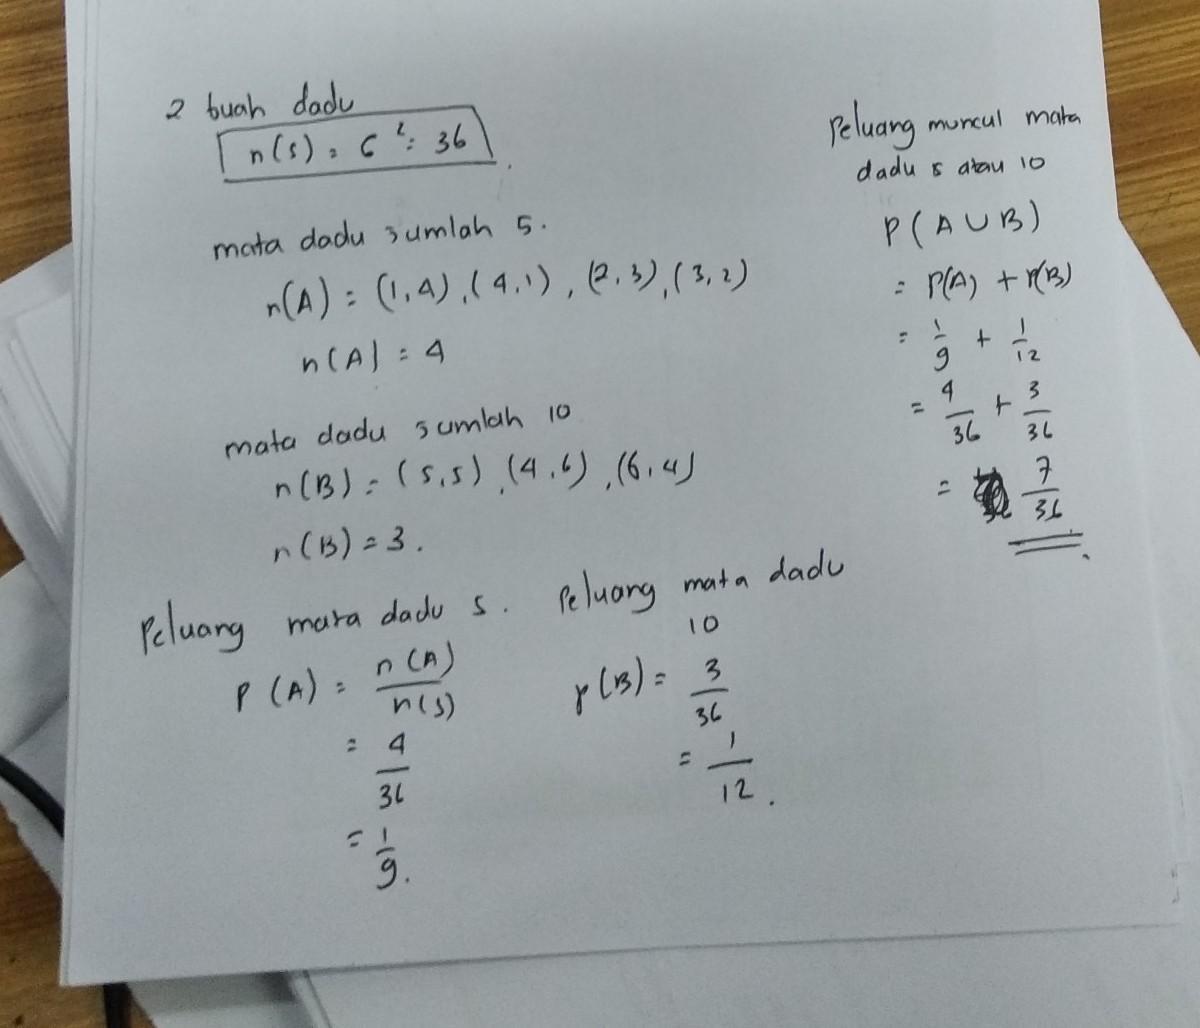 2 buah dadu
n(s) = 6² = 36
mata dadu jumlah 5.
n(A) = (1,4), (4,1), (2,3), (3,2)
n(A) = 4
mata dadu jumlah 10
n(B) = (5,5), (4,6), (6,4)
n(B) = 3.
Peluang mata dadu 5.
P(A) = n(A)/n(s)
= 4/36
= 1/9.
Peluang mata dadu
10
p(B) = 3/36
= 1/12.
Peluang muncul mata
dadu 5 atau 10
P(A∪B)
= P(A) + P(B)
= 1/9 + 1/12
= 4/36 + 3/36
= 7/36